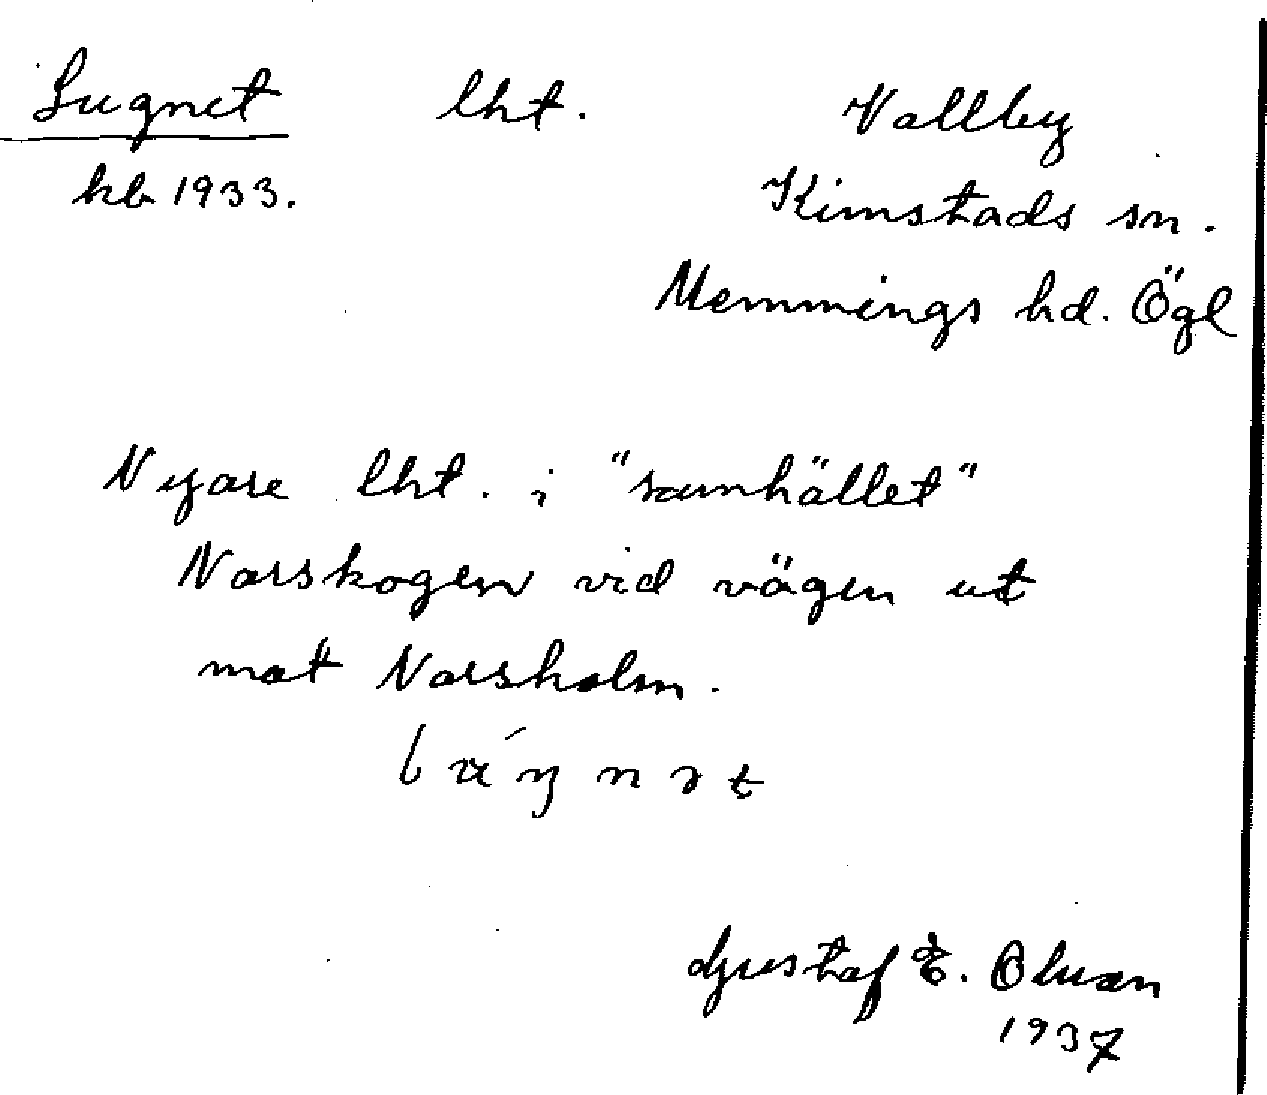 Lugnet lht. Vallby
kb 1933. Kimstads sn.
Memmings hd. Ögl
Nyare lht. i "samhället"
Norskogen vid vägen ut
mot Norsholm.
Gustaf E. Olson
1937